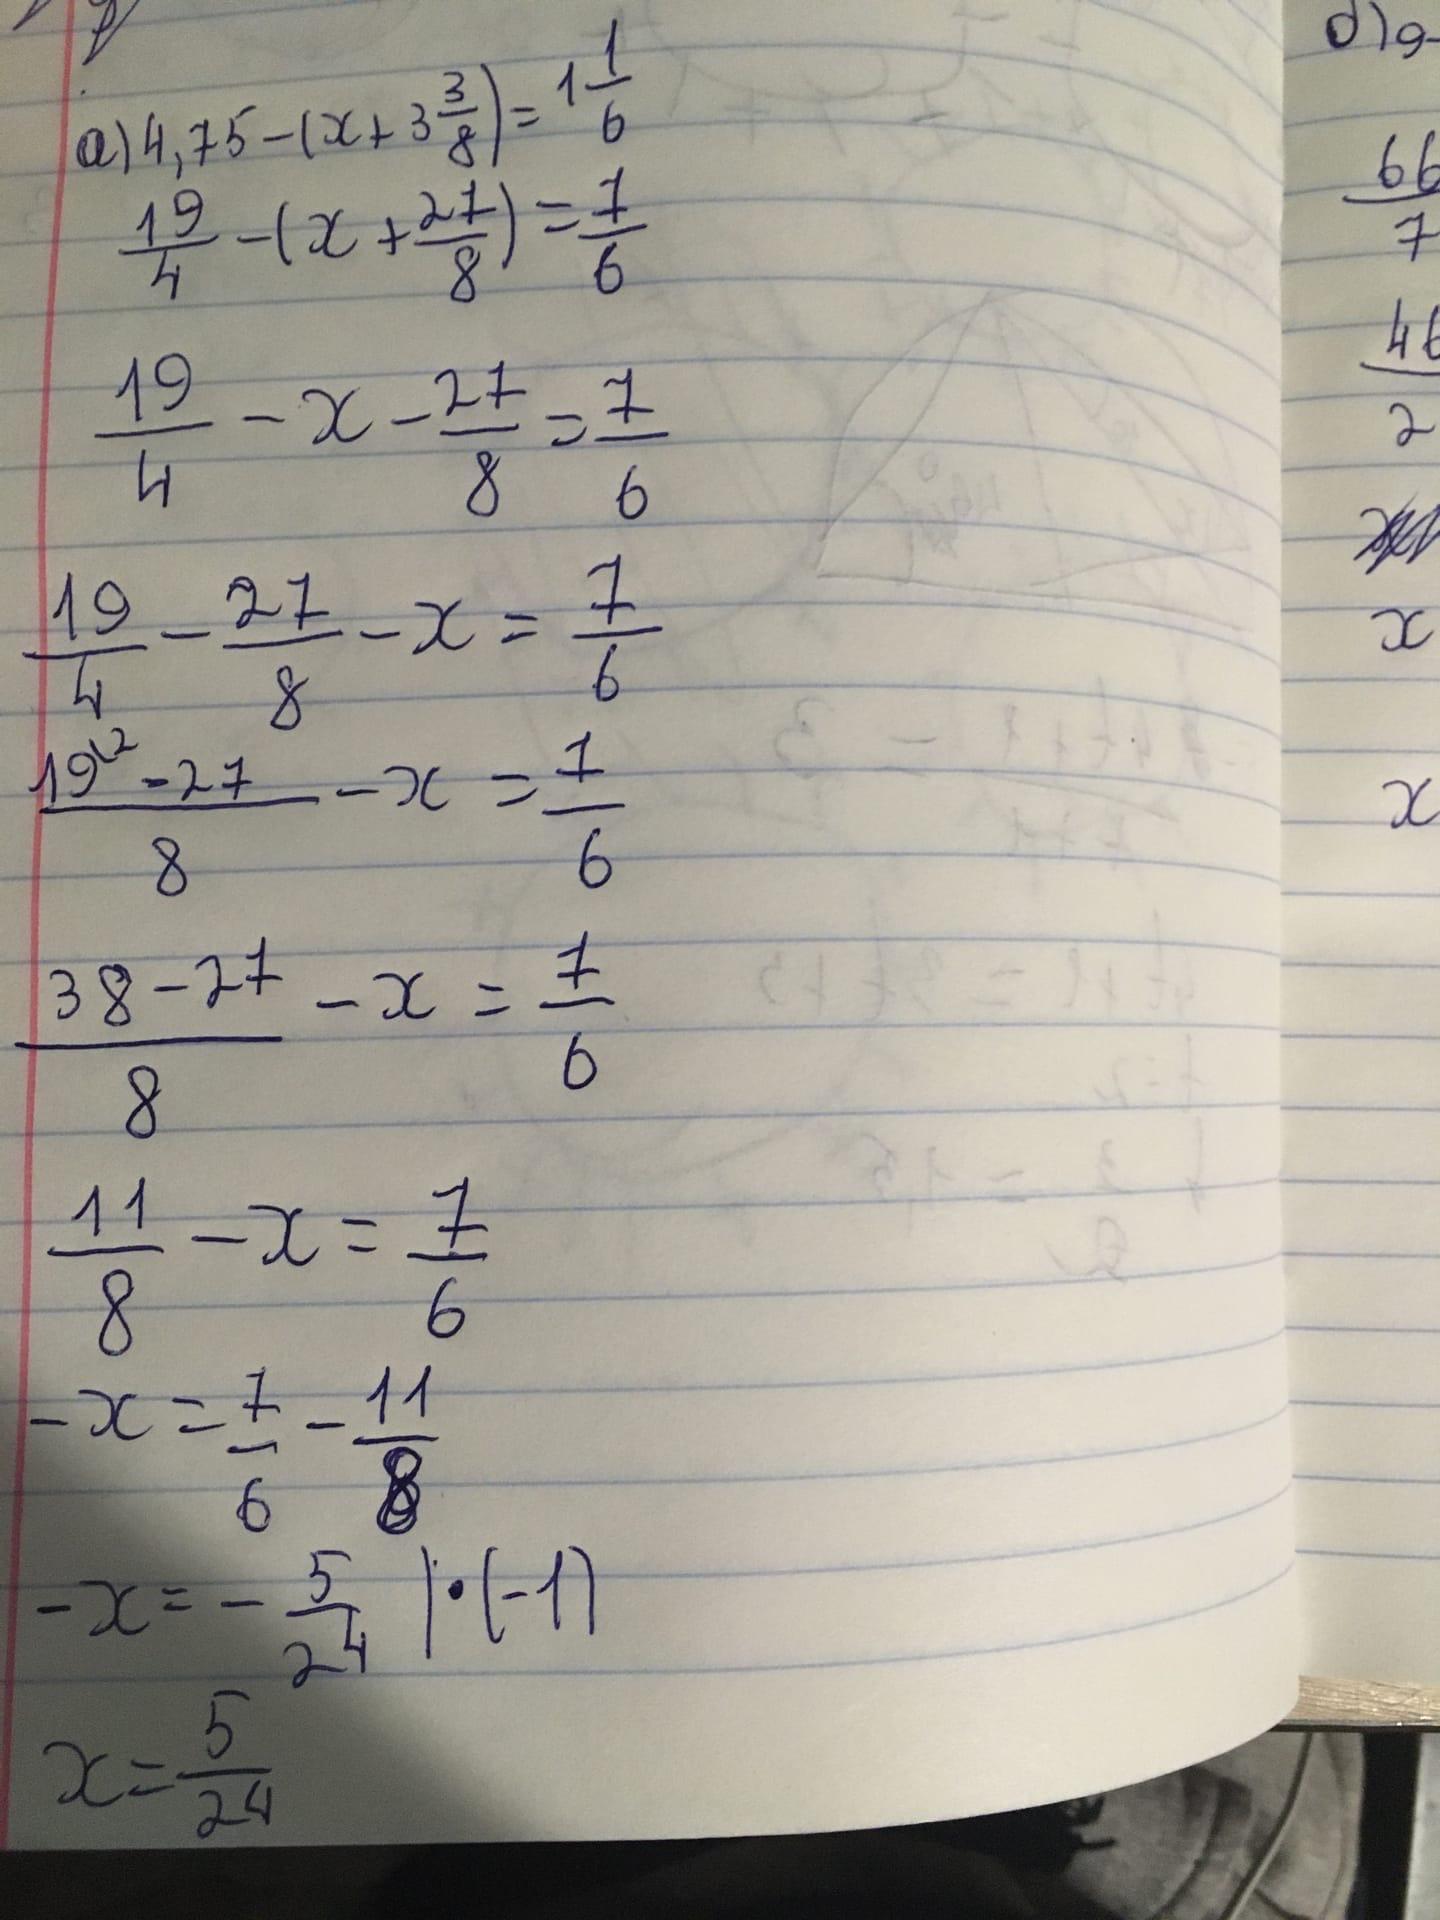 a) 4,75 - (x + 3 3/8) = 1 1/6
19/4 - (x + 27/8) = 7/6
19/4 - x - 27/8 = 7/6
19/4 - 27/8 - x = 7/6
(19^(2 - 27)/8 - x = 7/6
(38 - 27)/8 - x = 7/6
11/8 - x = 7/6
-x = 7/6 - 11/8
-x = - 5/24 | · (-1)
x = 5/24
d) 9-
66/7
46/2
x
x